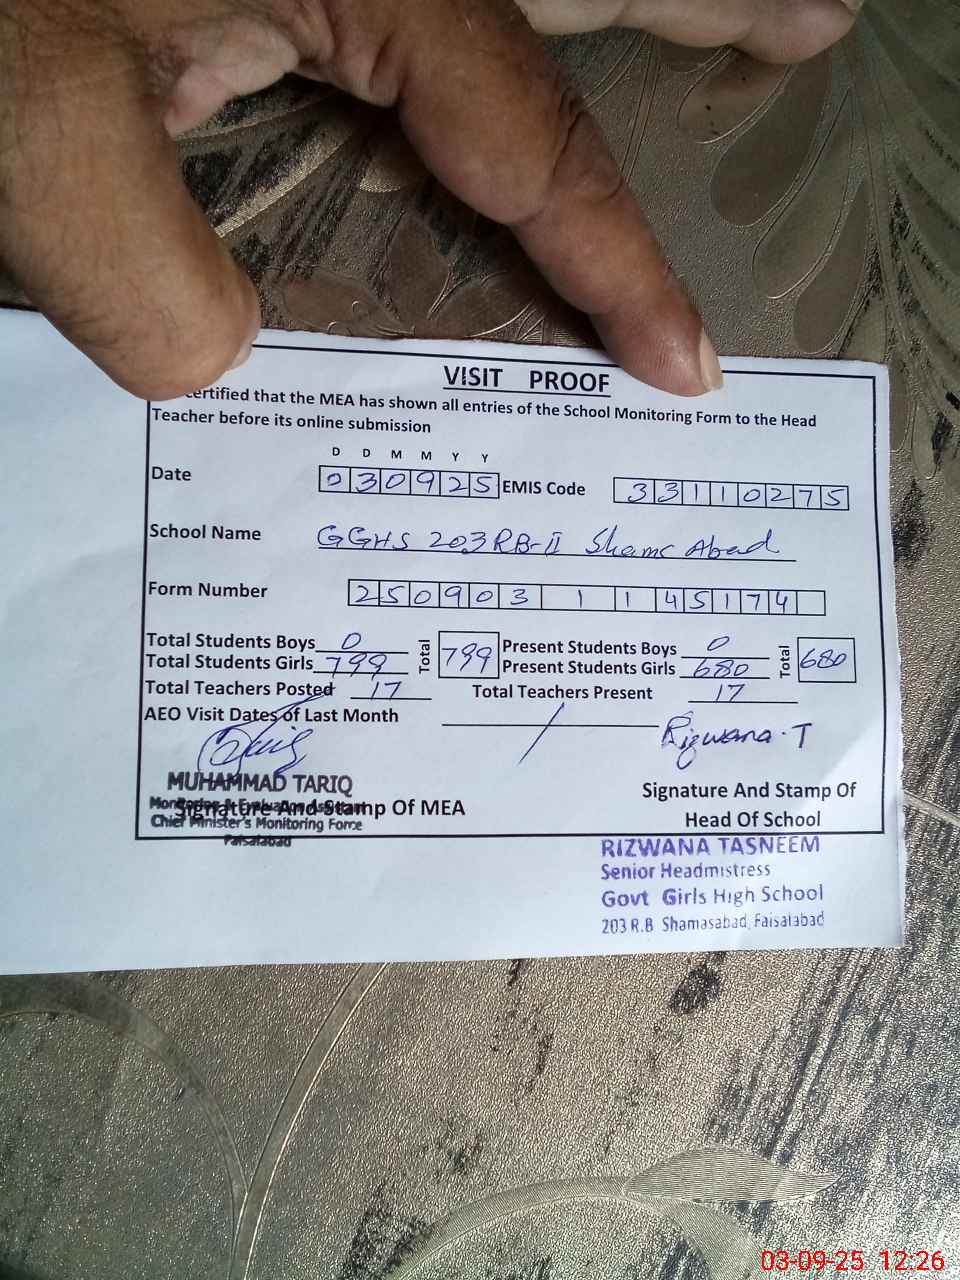 VISIT PROOF
certified that the MEA has shown all entries of the School Monitoring Form to the Head
Teacher before its online submission
D D M M Y Y
Date 030925 EMIS Code 33110275
School Name GGHS 203 RB-II Shams Abad
Form Number 250903 1 145174
Total Students Boys 0 Total 799 Present Students Boys 0 Total 680
Total Students Girls 799 Present Students Girls 680
Total Teachers Posted 17 Total Teachers Present 17
AEO Visit Dates of Last Month /
Rizwana.T
MUHAMMAD TARIQ
Signature And Stamp Of MEA
Monitoring & Evaluation Assistant
Chief Minister's Monitoring Force
Faisalabad
Signature And Stamp Of
Head Of School
RIZWANA TASNEEM
Senior Headmistress
Govt Girls High School
203 R.B Shamasabad, Faisalabad
03-09-25 12:26